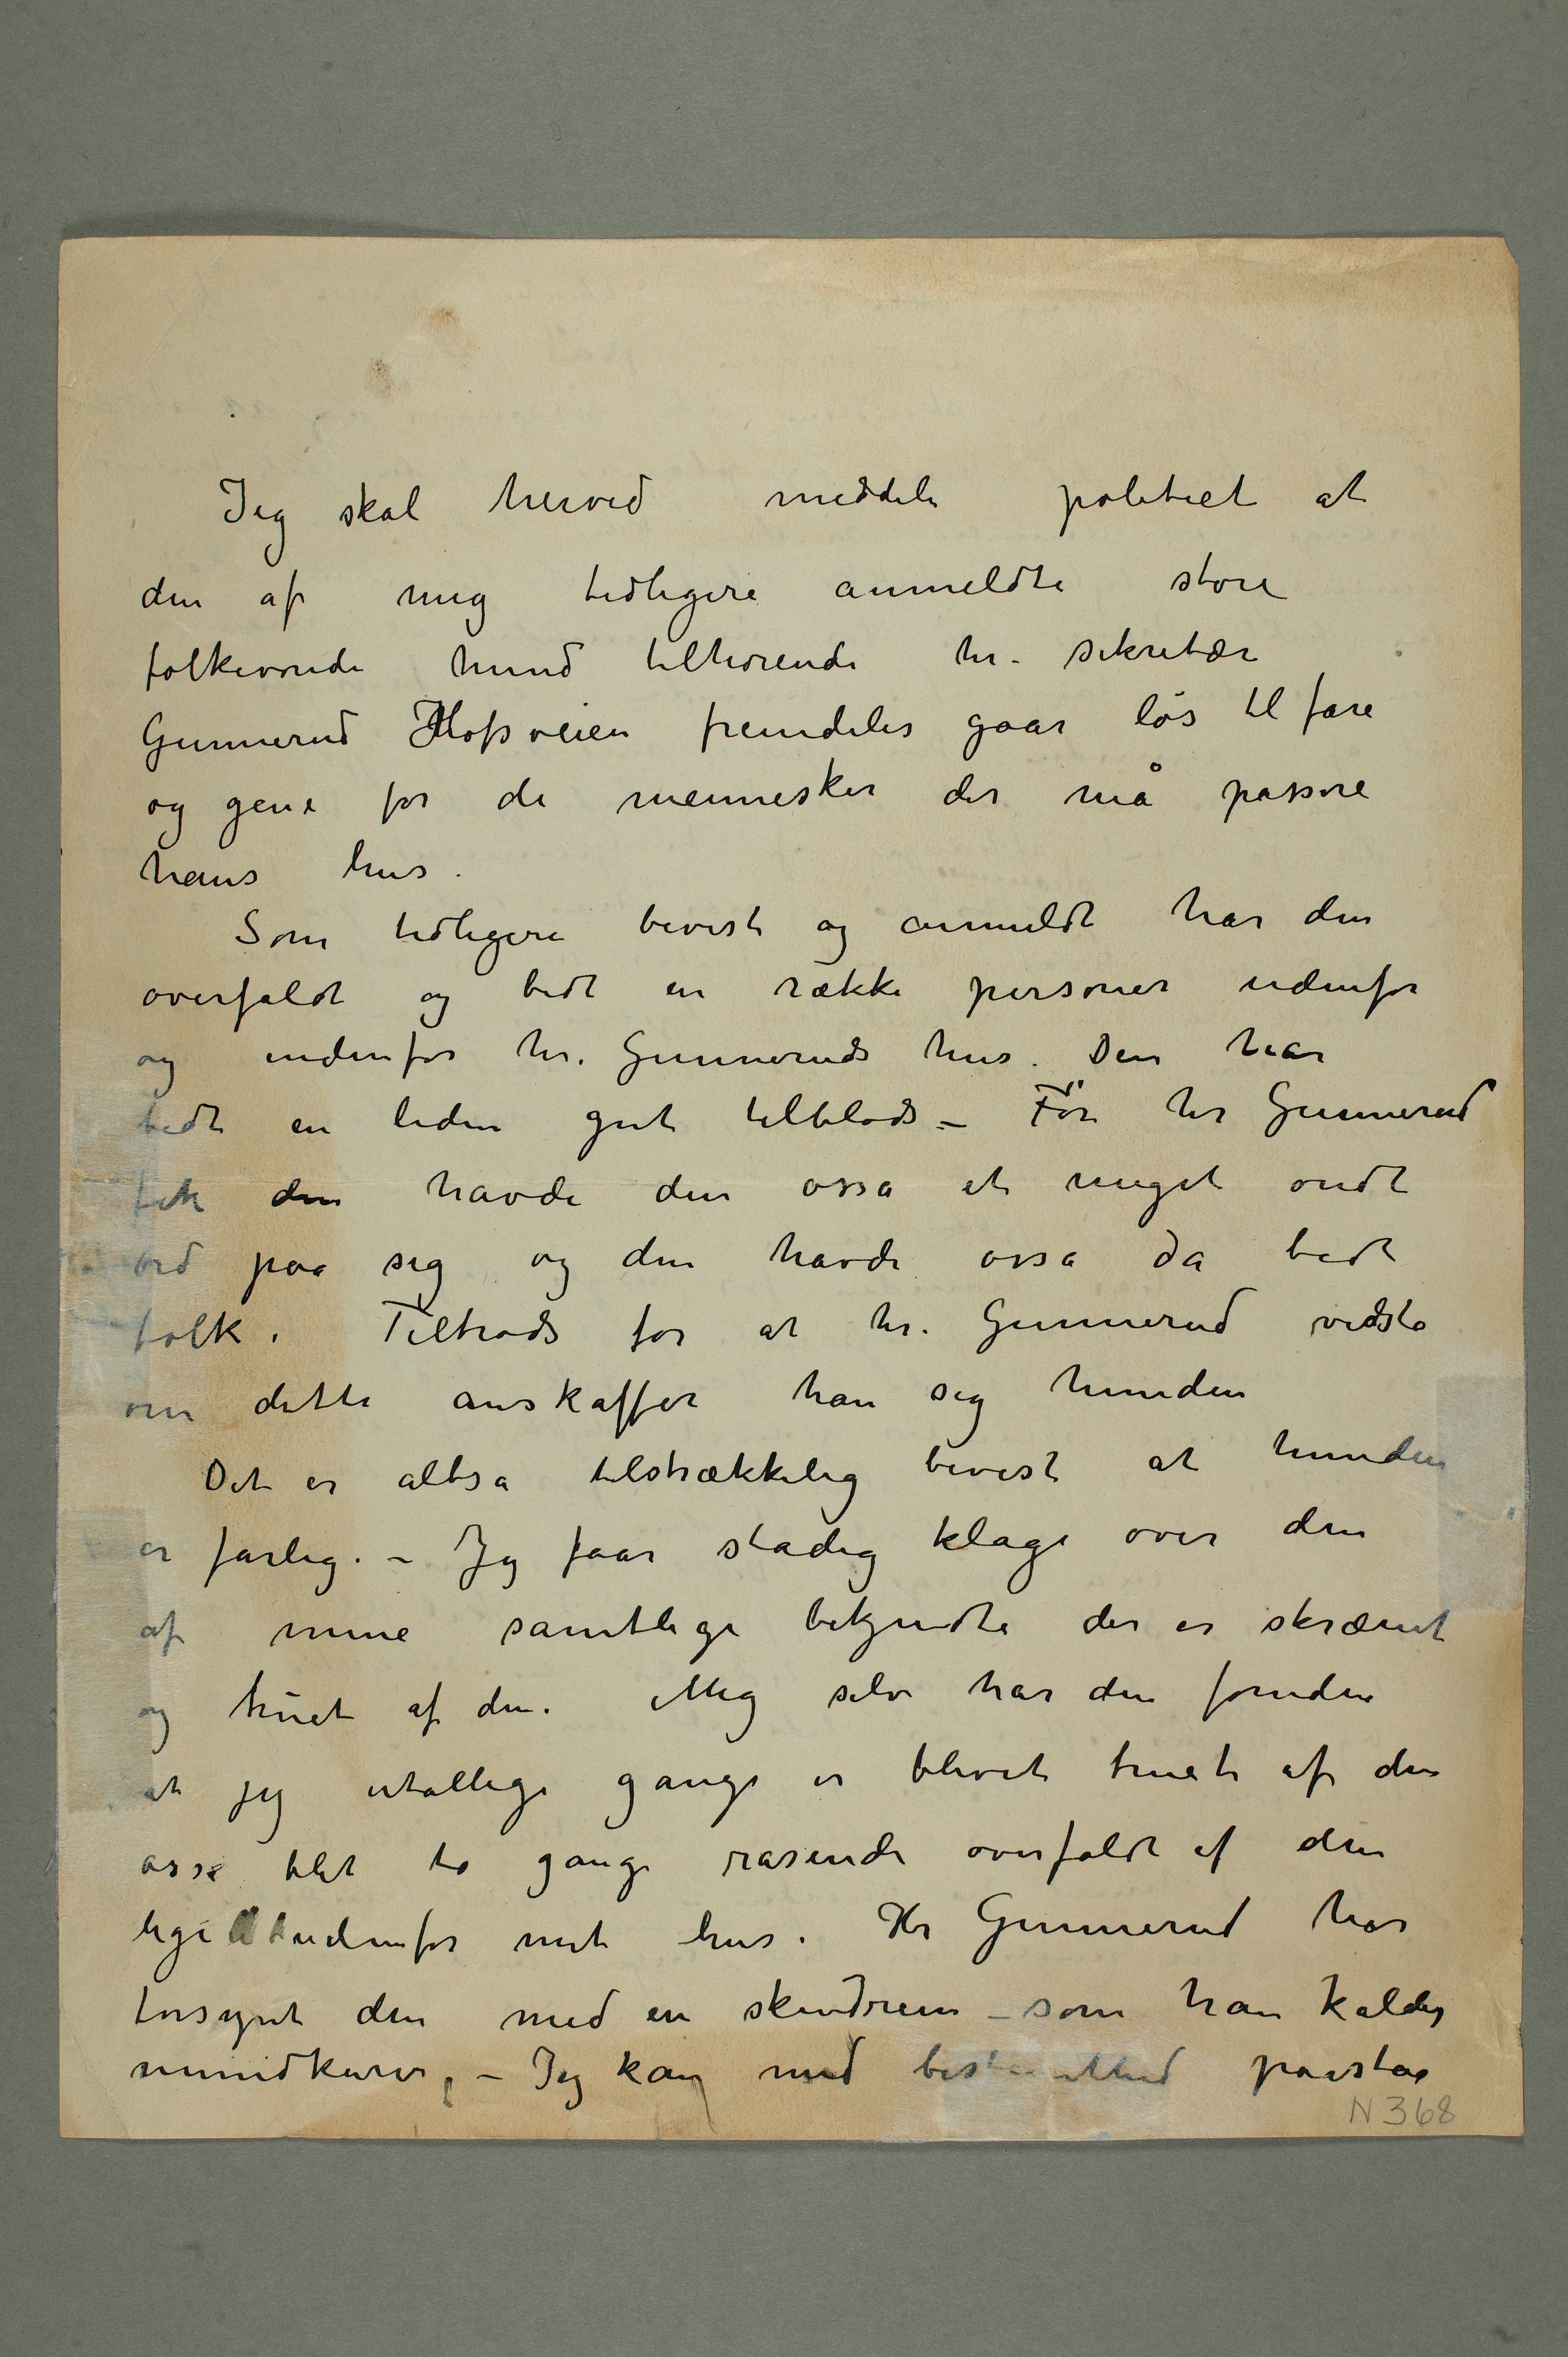 Jeg skal herved meddele politiet at
den af mig tidligere anmeldte store
folkevonde hund tilhørende hr. sekretær
Gunnerud Hofsveien fremdeles gaar løs til fare
og gene for de mennesker der må passere
hans hus.
Som tidligere bevist og anmeldt har den
overfaldt og bidt en række personer udenfor
og indenfor hr. Gunneruds hus. Den har
bidt en liden gut tilblods – Før hr Gunnerud
fik den havde den osså et meget ondt
ord paa sig og den havde osså da bidt
folk. Tiltrods for at hr. Gunnerud vidste
om dette anskaffet han sig hunden
Det er altså tilstrækkelig bevist at hunden
er farlig. – Jeg faar stadig klage over den
af mine samtlige bekjendte der er skræmt
og truet af den. Mig selv har den foruden
at jeg utallige gange er blevet truet af den
osså blit to gange rasende overfaldt af den
lige udenfor mit hus. Hr Gunnerud har
forsynt den med en skindrem – som han kalder
mundkurv, – Jeg kan med bestemthed paastaa
N 368